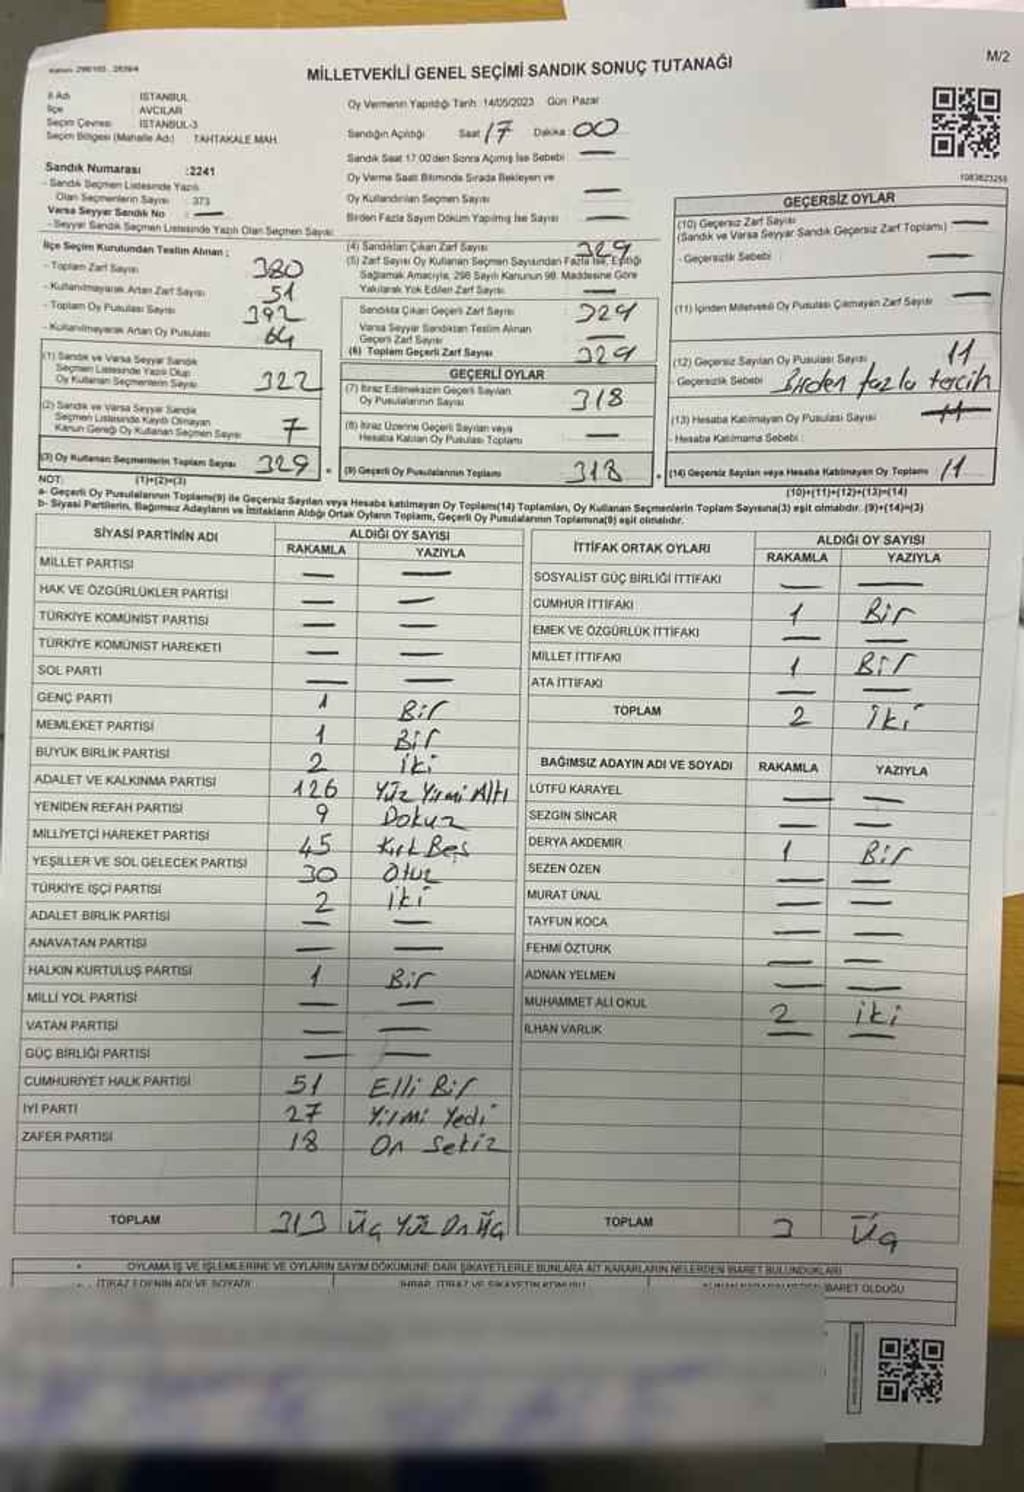 MİLLETVEKİLİ GENEL SEÇİMİ SANDIK SONUÇ TUTANAĞI
M/2
İl Adı : İSTANBUL
İlçe : AVCILAR
Seçim Çevresi : İSTANBUL-3
Seçim Bölgesi (Mahalle Adı) : TAHTAKALE MAH.
Sandık Numarası :2241
- Sandık Seçmen Listesinde Yazılı
Olan Seçmenlerin Sayısı : 373
Varsa Seyyar Sandık No : —
- Seyyar Sandık Seçmen Listesinde Yazılı Olan Seçmen Sayısı:
Oy Vermenin Yapıldığı Tarih: 14/05/2023 Gün: Pazar
Sandığın Açıldığı Saat 17 Dakika: 00
Sandık Saat 17:00'den Sonra Açılmış İse Sebebi —
Oy Verme Saati Bitiminde Sırada Bekleyen ve
Oy Kullandırılan Seçmen Sayısı —
Birden Fazla Sayım Döküm Yapılmış İse Sayısı —
1083623255
İlçe Seçim Kurulundan Teslim Alınan ;
- Toplam Zarf Sayısı 380
- Kullanılmayarak Artan Zarf Sayısı 51
- Toplam Oy Pusulası Sayısı 392
- Kullanılmayarak Artan Oy Pusulası 64
(1) Sandık ve Varsa Seyyar Sandık
Seçmen Listesinde Yazılı Olup
Oy Kullanan Seçmenlerin Sayısı 322
(2) Sandık ve Varsa Seyyar Sandık
Seçmen Listesinde Kayıtlı Olmayan
Kanun Gereği Oy Kullanan Seçmen Sayısı 7
(3) Oy Kullanan Seçmenlerin Toplam Sayısı 329
(1)+(2)=(3)
(4) Sandıktan Çıkan Zarf Sayısı 329
(5) Zarf Sayısı Oy Kullanan Seçmen Sayısından Fazla İse, Eşitliği
Sağlamak Amacıyla, 298 Sayılı Kanunun 98. Maddesine Göre
Yakılarak Yok Edilen Zarf Sayısı —
Sandıkta Çıkan Geçerli Zarf Sayısı 329
Varsa Seyyar Sandıktan Teslim Alınan
Geçerli Zarf Sayısı —
(6) Toplam Geçerli Zarf Sayısı 329
GEÇERLİ OYLAR
(7) İtiraz Edilmeksizin Geçerli Sayılan
Oy Pusulalarının Sayısı 318
(8) İtiraz Üzerine Geçerli Sayılan veya
Hesaba Katılan Oy Pusulası Toplamı —
(9) Geçerli Oy Pusulalarının Toplamı 318
GEÇERSİZ OYLAR
(10) Geçersiz Zarf Sayısı —
(Sandık ve Varsa Seyyar Sandık Geçersiz Zarf Toplamı)
- Geçersizlik Sebebi : —
(11) İçinden Milletvekili Oy Pusulası Çıkmayan Zarf Sayısı —
(12) Geçersiz Sayılan Oy Pusulası Sayısı 11
- Geçersizlik Sebebi Birden fazla tercih
(13) Hesaba Katılmayan Oy Pusulası Sayısı 11
- Hesaba Katılmama Sebebi :
(14) Geçersiz Sayılan veya Hesaba Katılmayan Oy Toplamı 11
(10)+(11)+(12)+(13)=(14)
NOT:
a- Geçerli Oy Pusulalarının Toplamı(9) ile Geçersiz Sayılan veya Hesaba katılmayan Oy Toplamı(14) Toplamları, Oy Kullanan Seçmenlerin Toplam Sayısına(3) eşit olmalıdır. (9)+(14)=(3)
b- Siyasi Partilerin, Bağımsız Adayların ve İttifakların Aldığı Ortak Oyların Toplamı, Geçerli Oy Pusulalarının Toplamına(9) eşit olmalıdır.
SİYASİ PARTİNİN ADI ALDIĞI OY SAYISI
RAKAMLA YAZIYLA
MİLLET PARTİSİ — —
HAK VE ÖZGÜRLÜKLER PARTİSİ — —
TÜRKİYE KOMÜNİST PARTİSİ — —
TÜRKİYE KOMÜNİST HAREKETİ — —
SOL PARTİ — —
GENÇ PARTİ 1 Bir
MEMLEKET PARTİSİ 1 Bir
BÜYÜK BİRLİK PARTİSİ 2 iki
ADALET VE KALKINMA PARTİSİ 126 Yüz Yirmi Altı
YENİDEN REFAH PARTİSİ 9 Dokuz
MİLLİYETÇİ HAREKET PARTİSİ 45 Kırk Beş
YEŞİLLER VE SOL GELECEK PARTİSİ 30 Otuz
TÜRKİYE İŞÇİ PARTİSİ 2 iki
ADALET BİRLİK PARTİSİ — —
ANAVATAN PARTİSİ — —
HALKIN KURTULUŞ PARTİSİ 1 Bir
MİLLİ YOL PARTİSİ — —
VATAN PARTİSİ — —
GÜÇ BİRLİĞİ PARTİSİ — —
CUMHURİYET HALK PARTİSİ 51 Elli Bir
İYİ PARTİ 27 Yirmi Yedi
ZAFER PARTİSİ 18 On Sekiz
TOPLAM 313 Üç Yüz On Üç
İTTİFAK ORTAK OYLARI ALDIĞI OY SAYISI
RAKAMLA YAZIYLA
SOSYALİST GÜÇ BİRLİĞİ İTTİFAKI — —
CUMHUR İTTİFAKI 1 Bir
EMEK VE ÖZGÜRLÜK İTTİFAKI — —
MİLLET İTTİFAKI 1 Bir
ATA İTTİFAKI — —
TOPLAM 2 İki
BAĞIMSIZ ADAYIN ADI VE SOYADI RAKAMLA YAZIYLA
LÜTFÜ KARAYEL — —
SEZGİN SİNCAR — —
DERYA AKDEMİR 1 Bir
SEZEN ÖZEN — —
MURAT ÜNAL — —
TAYFUN KOCA — —
FEHMİ ÖZTÜRK — —
ADNAN YELMEN — —
MUHAMMET ALİ OKUL 2 iki
İLHAN VARLIK — —
TOPLAM 3 Üç
OYLAMA İŞ VE İŞLEMLERİNE VE OYLARIN SAYIM DÖKÜMÜNE DAİR ŞİKAYETLERLE BUNLARA AİT KARARLARIN NELERDEN İBARET BULUNDUKLARI
İTİRAZ EDENİN ADI VE SOYADI
İBARET OLDUĞU